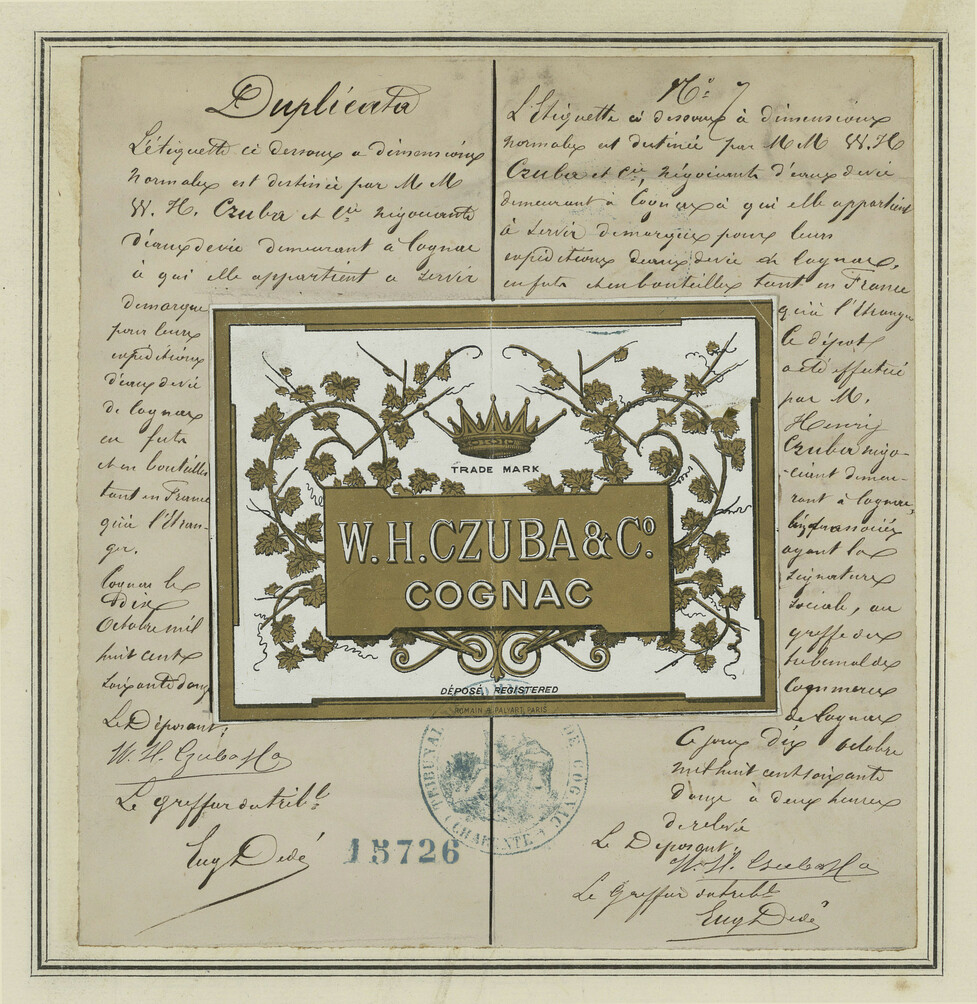 Duplicata
L'étiquette ci dessous a dimensions
normales est destinée par M M
W. H. Czuba et Cie négociants
d'eaux de vie demeurant à Cognac
à qui elle appartient a servir
de marque
pour leurs
expéditions
d'eaux de vie
de Cognac
en futs
et en bouteilles
tant en France
qu'à l'étran-
ger.
Cognac le
Dix
Octobre mil
huit cent
soixante douze
Le Déposant,
W. H. Czuba & Co
Le greffier du tribl
Eug Dedé
No 7
L'Etiquette ci dessous à dimensions
normales est destinée par M M W. H
Czuba et Cie, négociants d'eaux de vie
demeurant à Cognac à qui elle appartient
à servir de marque pour leurs
expéditions d'eaux de vie de Cognac,
en futs et en bouteilles tant en France
qu'à l'étranger
Ce dépot
a été effectué
par M.
Henri
Czuba négo-
ciant demeu-
rant à Cognac,
ayant la
signature
sociale, au
greffe du
tribunal de
Commerce
de Cognac
Ce jour dix octobre
mil huit cent soixante
douze à deux heures
de relevé
Le Déposant,
W. H. Czuba & Co
Le greffier du tribl
Eug Dedé
TRADE MARK
W. H. CZUBA & Co.
COGNAC
DÉPOSÉ, REGISTERED
ROMAIN & PALYART, PARIS
TRIBUNAL DE COGNAC
(CHARENTE)
15726